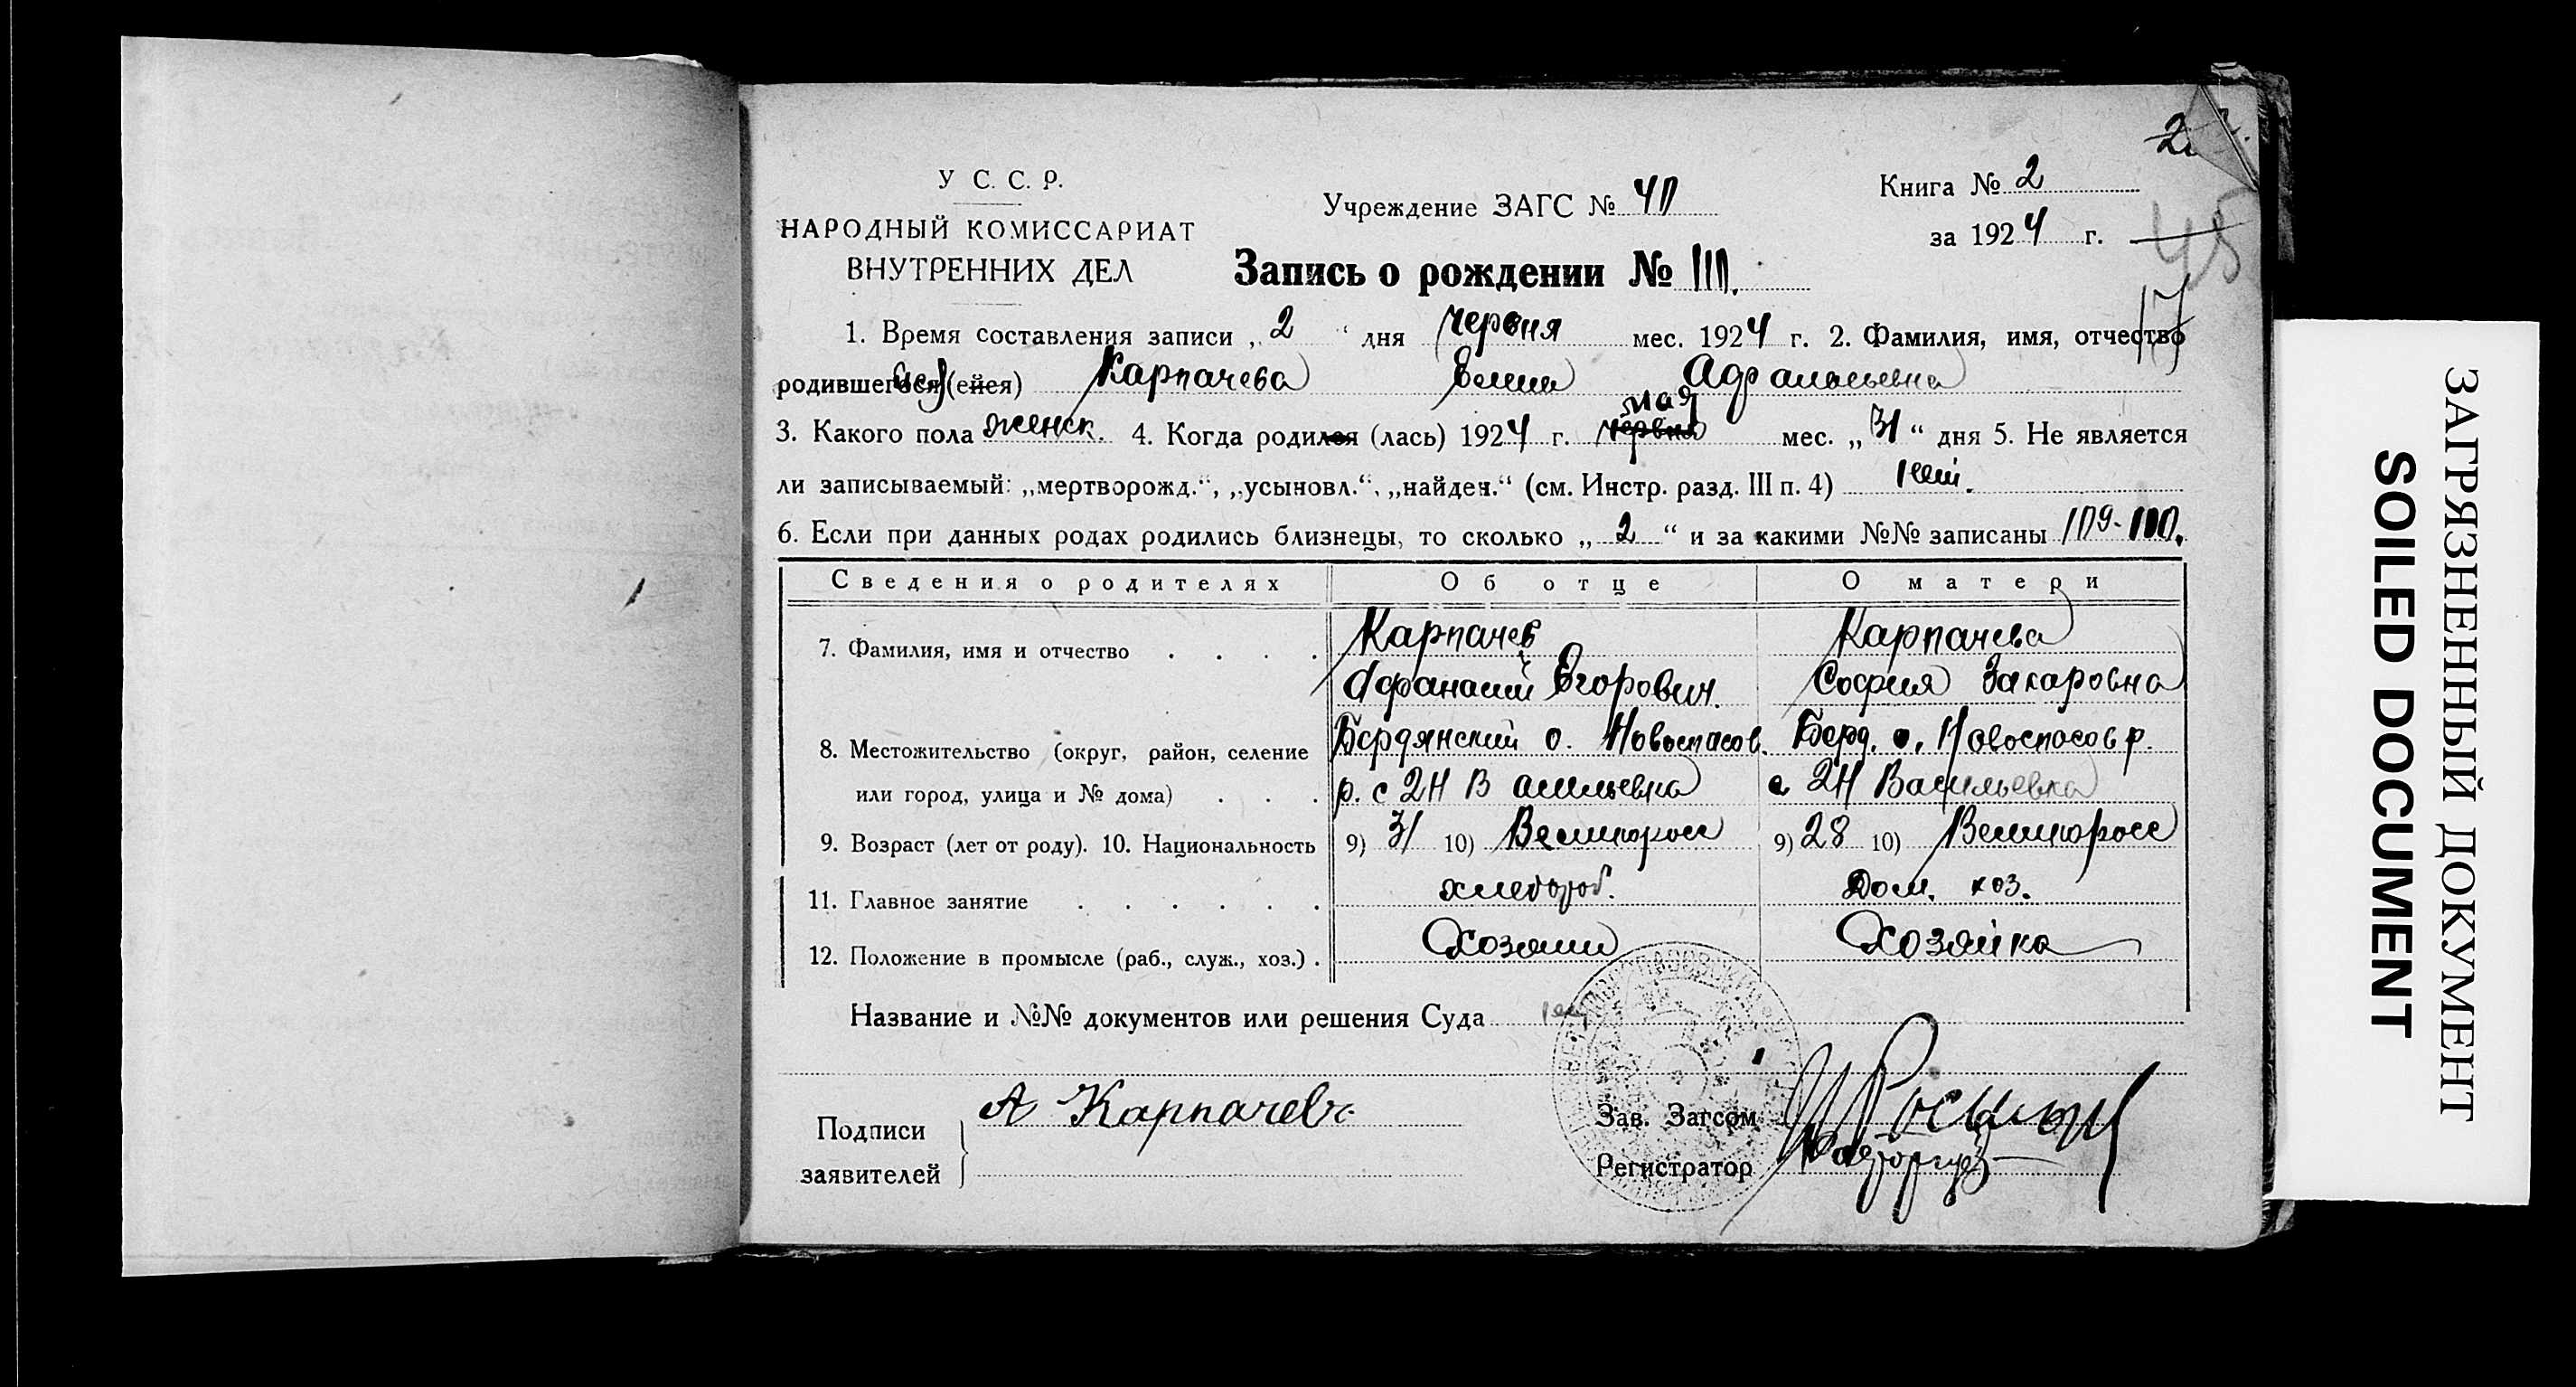 У С. С. Р.
НАРОДНЫЙ КОМИССАРИАТ
ВНУТРЕННИХ ДЕЛ
Учреждение ЗАГС № 40
Книга № 2
за 1924 г.
45
17
Запись о рождении № 110.
1. Время составления записи „ 2 “ дня червня мес. 1924 г. 2. Фамилия, имя, отчество
родившегося (ейся) Карпачева Елена Афанасьевна
мая
3. Какого пола женск. 4. Когда родился (лась) 1924 г. червня мес. „ 31 “ дня 5. Не является
ли записываемый: „мертворожд.“, „усыновл.“, „найден.“ (см. Инстр. разд. III п. 4) нет.
6. Если при данных родах родились близнецы, то сколько „ 2 “ и за какими №№ записаны 109-110.
Сведения о родителях Об отце О матери
7. Фамилия, имя и отчество . . . . Карпачев Карпачева
Афанасий Егорович. София Захаровна
8. Местожительство (округ, район, селение Бердянский о. Новоспасов. Берд. о. Новоспасов р.
или город, улица и № дома) . . . р. с 2Н Васильевка с 2Н Васильевка
9. Возраст (лет от роду). 10. Национальность 9) 31 10) Великоросс 9) 28 10) Великоросс
11. Главное занятие . . . . . . хлебороб. Дом. хоз.
12. Положение в промысле (раб., служ., хоз.) . Хозяин Хозяйка
Название и №№ документов или решения Суда нет
Подписи
заявителей
А Карпачев
Зав. Загсом
Регистратор
ЗАГРЯЗНЕННЫЙ ДОКУМЕНТ
SOILED DOCUMENT